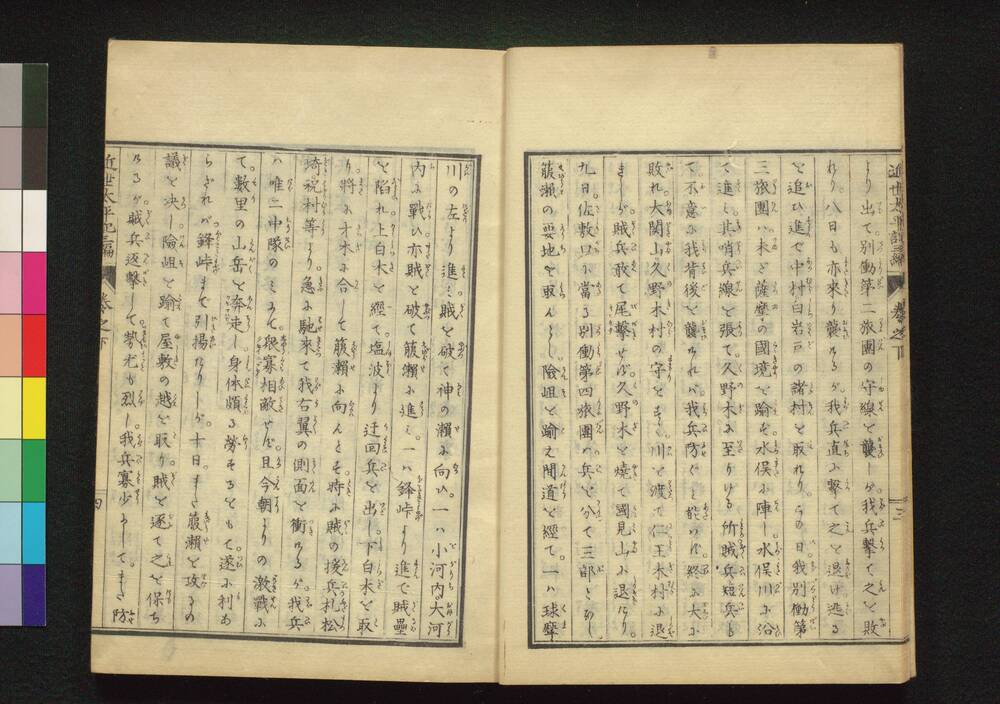 近世太平記二編 巻之下 三
より出て別働第二旅團の守線と襲ーが我兵撃て之と敗
れり八日も亦來り襲ひるが我兵直ふ撃て之と退け逃る
と追ひ進で中村白岩戸の諸村と取れりこの日我別働第
三旅團ハ未ど薩摩の國境と踰ゑ水俣ふ陣し水俣川ふ沿
て進ミ北哨兵線と張て久野木ふ至りける所賊兵短兵も
て不意ふ我背後と襲ひれバ我兵防ぐこと能はぞ終ふ大ふ
敗れ大関山久野木村の守とすて川と渡て仁王木村ふ退
きしが賊兵敢て尾撃せぞ久野木と燒て國見山ふ退けり
九日佐敷口ふ當る別働第四旅團ハ兵と分て三部となし
箙瀬の要地を取んとし險岨と踰え間道と經て一ハ球磨
川の左より進ミ賊と破て神の瀬ふ向ひ一ハ小河内大河
内ふ戰ひ亦賊と破て箙瀬ふ進ミ一ハ鋒峠より進で賊壘
と陷れ上白木と經て塩波より迂回兵と出し下白木と取
り將ふ才木ふ合して箙瀬ふ向んとぞ時ふ賊の援兵札松
埼祝村等より急ふ馳來て我右翼の側面と衝ひるが我兵
ハ唯二中隊のミふて衆寡相敵せぞ且今朝よりの激戰ふ
て數里の山岳と奔走し身体頗る勞そるともて遂ふ利あ
らざれバ鋒峠まで引揚たりしが十日また箙瀬と攻るの
議と决し險岨と踰て屋敷の越と取り賊と逐て之と保ち
ひるが賊兵逆撃して勢尤も烈し我兵寡少ふしてまた防
近世太平記二編 巻之下 四